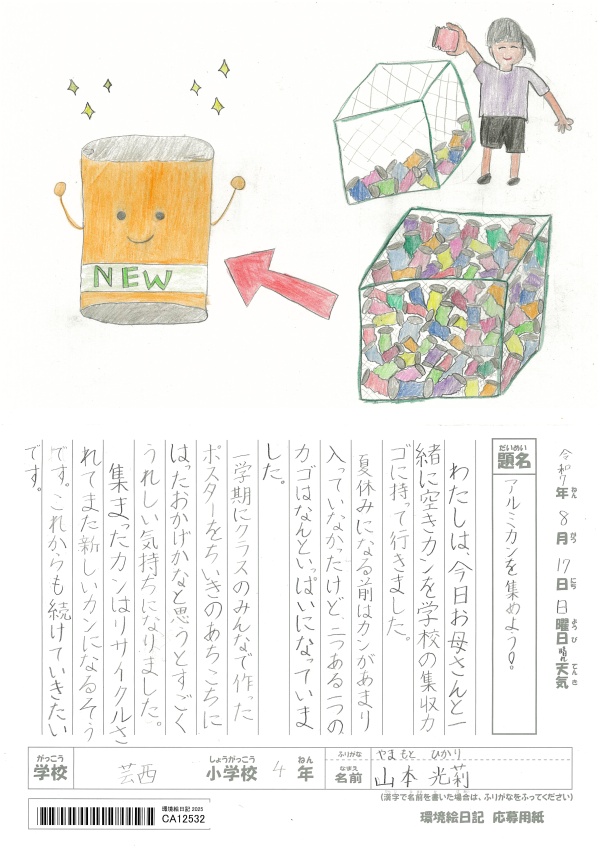 NEW
令和7年8月17日日曜日晴天気
ねん がつ にち ようび てんき
だいめい
題名
アルミカンを集めよう!。
わたしは、今日お母さんと一
緒に空きカンを学校の集収カ
ゴに持って行きました。
夏休みになる前はカンがあまり
入っていなかったけど、二つある一つの
カゴはなんといっぱいになっていま
した。
一学期にクラスのみんなで作った
ポスターをちいきのあちこちに
はったおかげかなと思うとすごく
うれしい気持ちになりました。
集まったカンはリサイクルさ
れてまた新しいカンになるそう
です。これからも続けていきたい
です。
がっこう しょうがっこう ねん
学校 芸西 小学校 4 年
ふりがな やまもと ひかり
なまえ
名前 山本 光莉
(漢字で名前を書いた場合は、ふりがなをふってください)
環境絵日記 2025
CA12532
環境絵日記 応募用紙